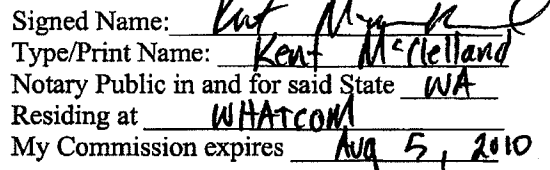 Signed Name: Kent M
Type/Print Name: Kent McClelland
Notary Public in and for said State WA
Residing at WHATCOM
My Commission expires Aug 5, 2010